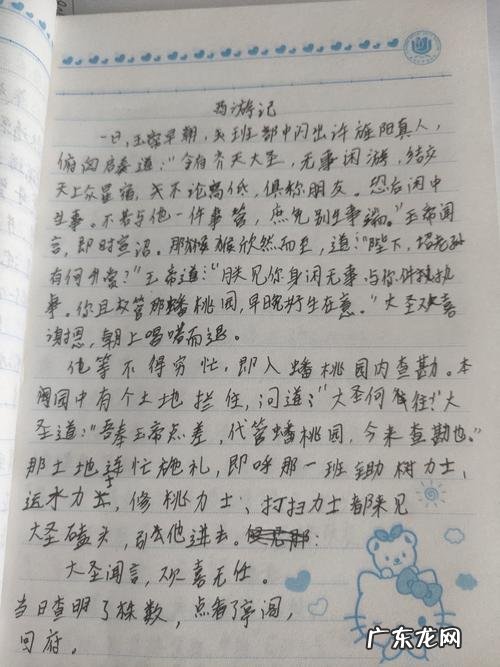 西游记
一日，玉帝早朝，班部中闪出许旌阳真人，
俯囟启奏道："今有齐天大圣，无事闲游，结交
天上众星宿，不论高低，俱称朋友。恐后闲中
生事。不若与他一件事管，庶免别生事端。"玉帝闻
言，即时宣诏。那猴王欣然而至，道："陛下，招老孙
有何升赏？"玉帝道："朕见你身闲无事，与你件执
事。你且权管那蟠桃园，早晚好生在意。"大圣欢喜
谢恩，朝上唱喏而退。
他等不得穷忙，即入蟠桃园内查勘。本
园中有个土地拦住，问道："大圣何往？"大
圣道："吾奉玉帝点差，代管蟠桃园，今来查勘也。"
那土地连忙施礼，即呼那一班锄树力士、
运水力士，修桃力士、打扫力士都来见
大圣磕头，引他进去。
大圣闻言，欢喜无任。
当日查明了株数，点看了亭阁，
回府。
广东龙网